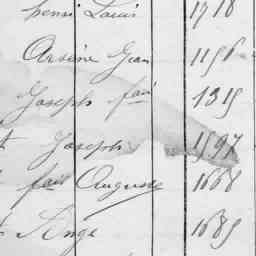 henri Louis 1718
Arsène Jean 1156
Joseph fail 1319
Joseph 1597
fois Auguste 1668
Ange 1689